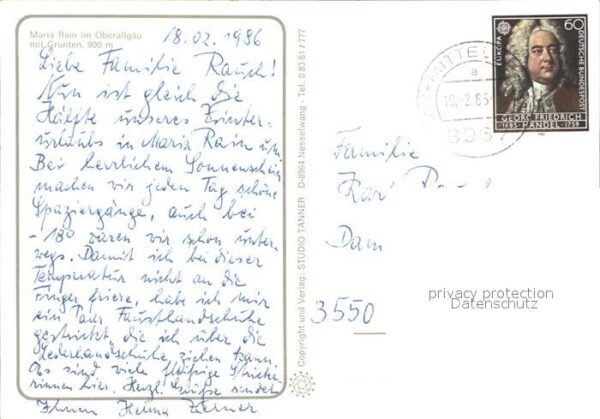 Maria Rain im Oberallgäu
mit Grünten, 900 m
18.02.1986
Liebe Familie Rauch!
Nun ist gleich die
Hälfte unseres Winter-
urlaubs in Maria Rain um.
Bei herrlichem Sonnenschein
machen wir jeden Tag schöne
Spaziergänge, auch bei
-18° waren wir schon unter-
wegs. Damit ich bei dieser
Temperatur nicht an die
Finger friere, habe ich mir
ein Paar Fausthandschuhe
gestrickt, die ich über die
Lederhandschuhe ziehen kann.
Es sind viele fleißige Stricke-
rinnen hier. Herzl. Grüße sendet
Ihnen Helma
Copyright und Verlag: STUDIO TANNER D-8964 Nesselwang · Tel. 0 83 61 / 777
EUROPA
60
DEUTSCHE BUNDESPOST
GEORG FRIEDRICH
1685 HÄNDEL 1759
OY-MITTEL
a
Familie
Karl
3550
privacy protection
Datenschutz